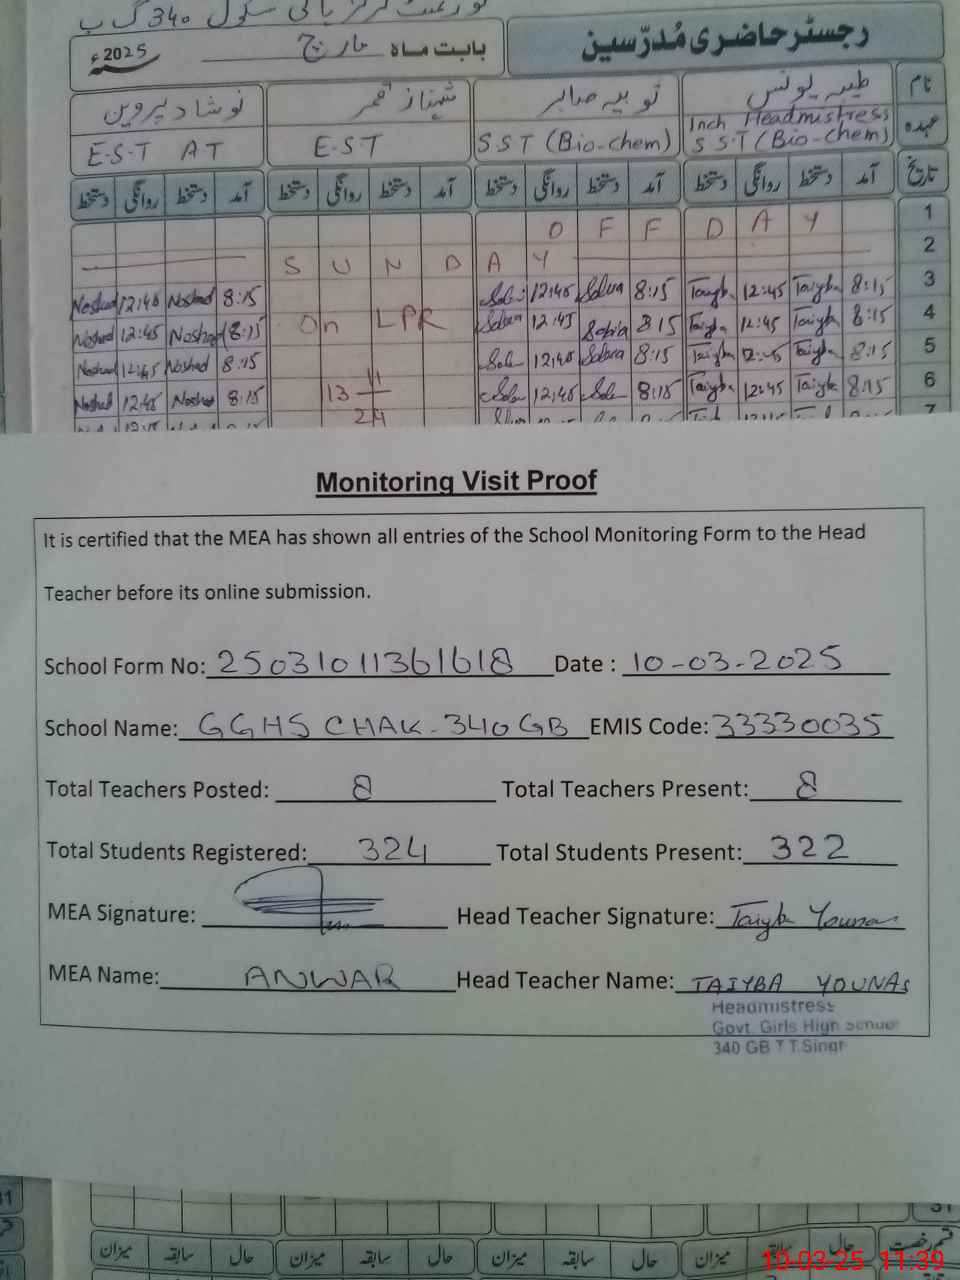 گورنمنٹ گرلز ہائی سکول 340 گ ب
رجسٹر حاضری مُدرّسین
بابت ماہ مارچ 2025ء
نام طیبہ یونس ثوبیہ صابر شہناز قمر نوشاد پروین
عہدہ Inch Headmistress S.S.T (Bio-chem) SST (Bio-chem) E.S.T E.S.T AT
تاریخ آمد دستخط روانگی دستخط آمد دستخط روانگی دستخط آمد دستخط روانگی دستخط آمد دستخط روانگی دستخط
1 OFF DAY
2 SUNDAY
3 Noshad 12:45 Noshad 8:15 12:45 8:15 Taiyba 12:45 Taiyba 8:15
4 Noshad 12:45 Noshad 8:15 On LPR 12:45 8:15 Taiyba 12:45 Taiyba 8:15
5 Noshad 12:45 Noshad 8:15 12:45 8:15 Taiyba 12:45 Taiyba 8:15
6 Noshad 12:45 Noshad 8:15 13 11 24 12:45 8:15 Taiyba 12:45 Taiyba 8:15
7
Monitoring Visit Proof
It is certified that the MEA has shown all entries of the School Monitoring Form to the Head
Teacher before its online submission.
School Form No: 25031011361618 Date : 10-03-2025
School Name: GGHS CHAK-340GB EMIS Code: 33330035
Total Teachers Posted: 8 Total Teachers Present: 8
Total Students Registered: 324 Total Students Present: 322
MEA Signature: Head Teacher Signature: Taiyba Younas
MEA Name: ANWAR Head Teacher Name: TAIYBA YOUNAS
Headmistress
Govt. Girls High School
340 GB T.T.Singh
31
قسم رخصت حال سابقہ میزان حال سابقہ میزان حال سابقہ میزان حال سابقہ میزان
10-03-25 11:39